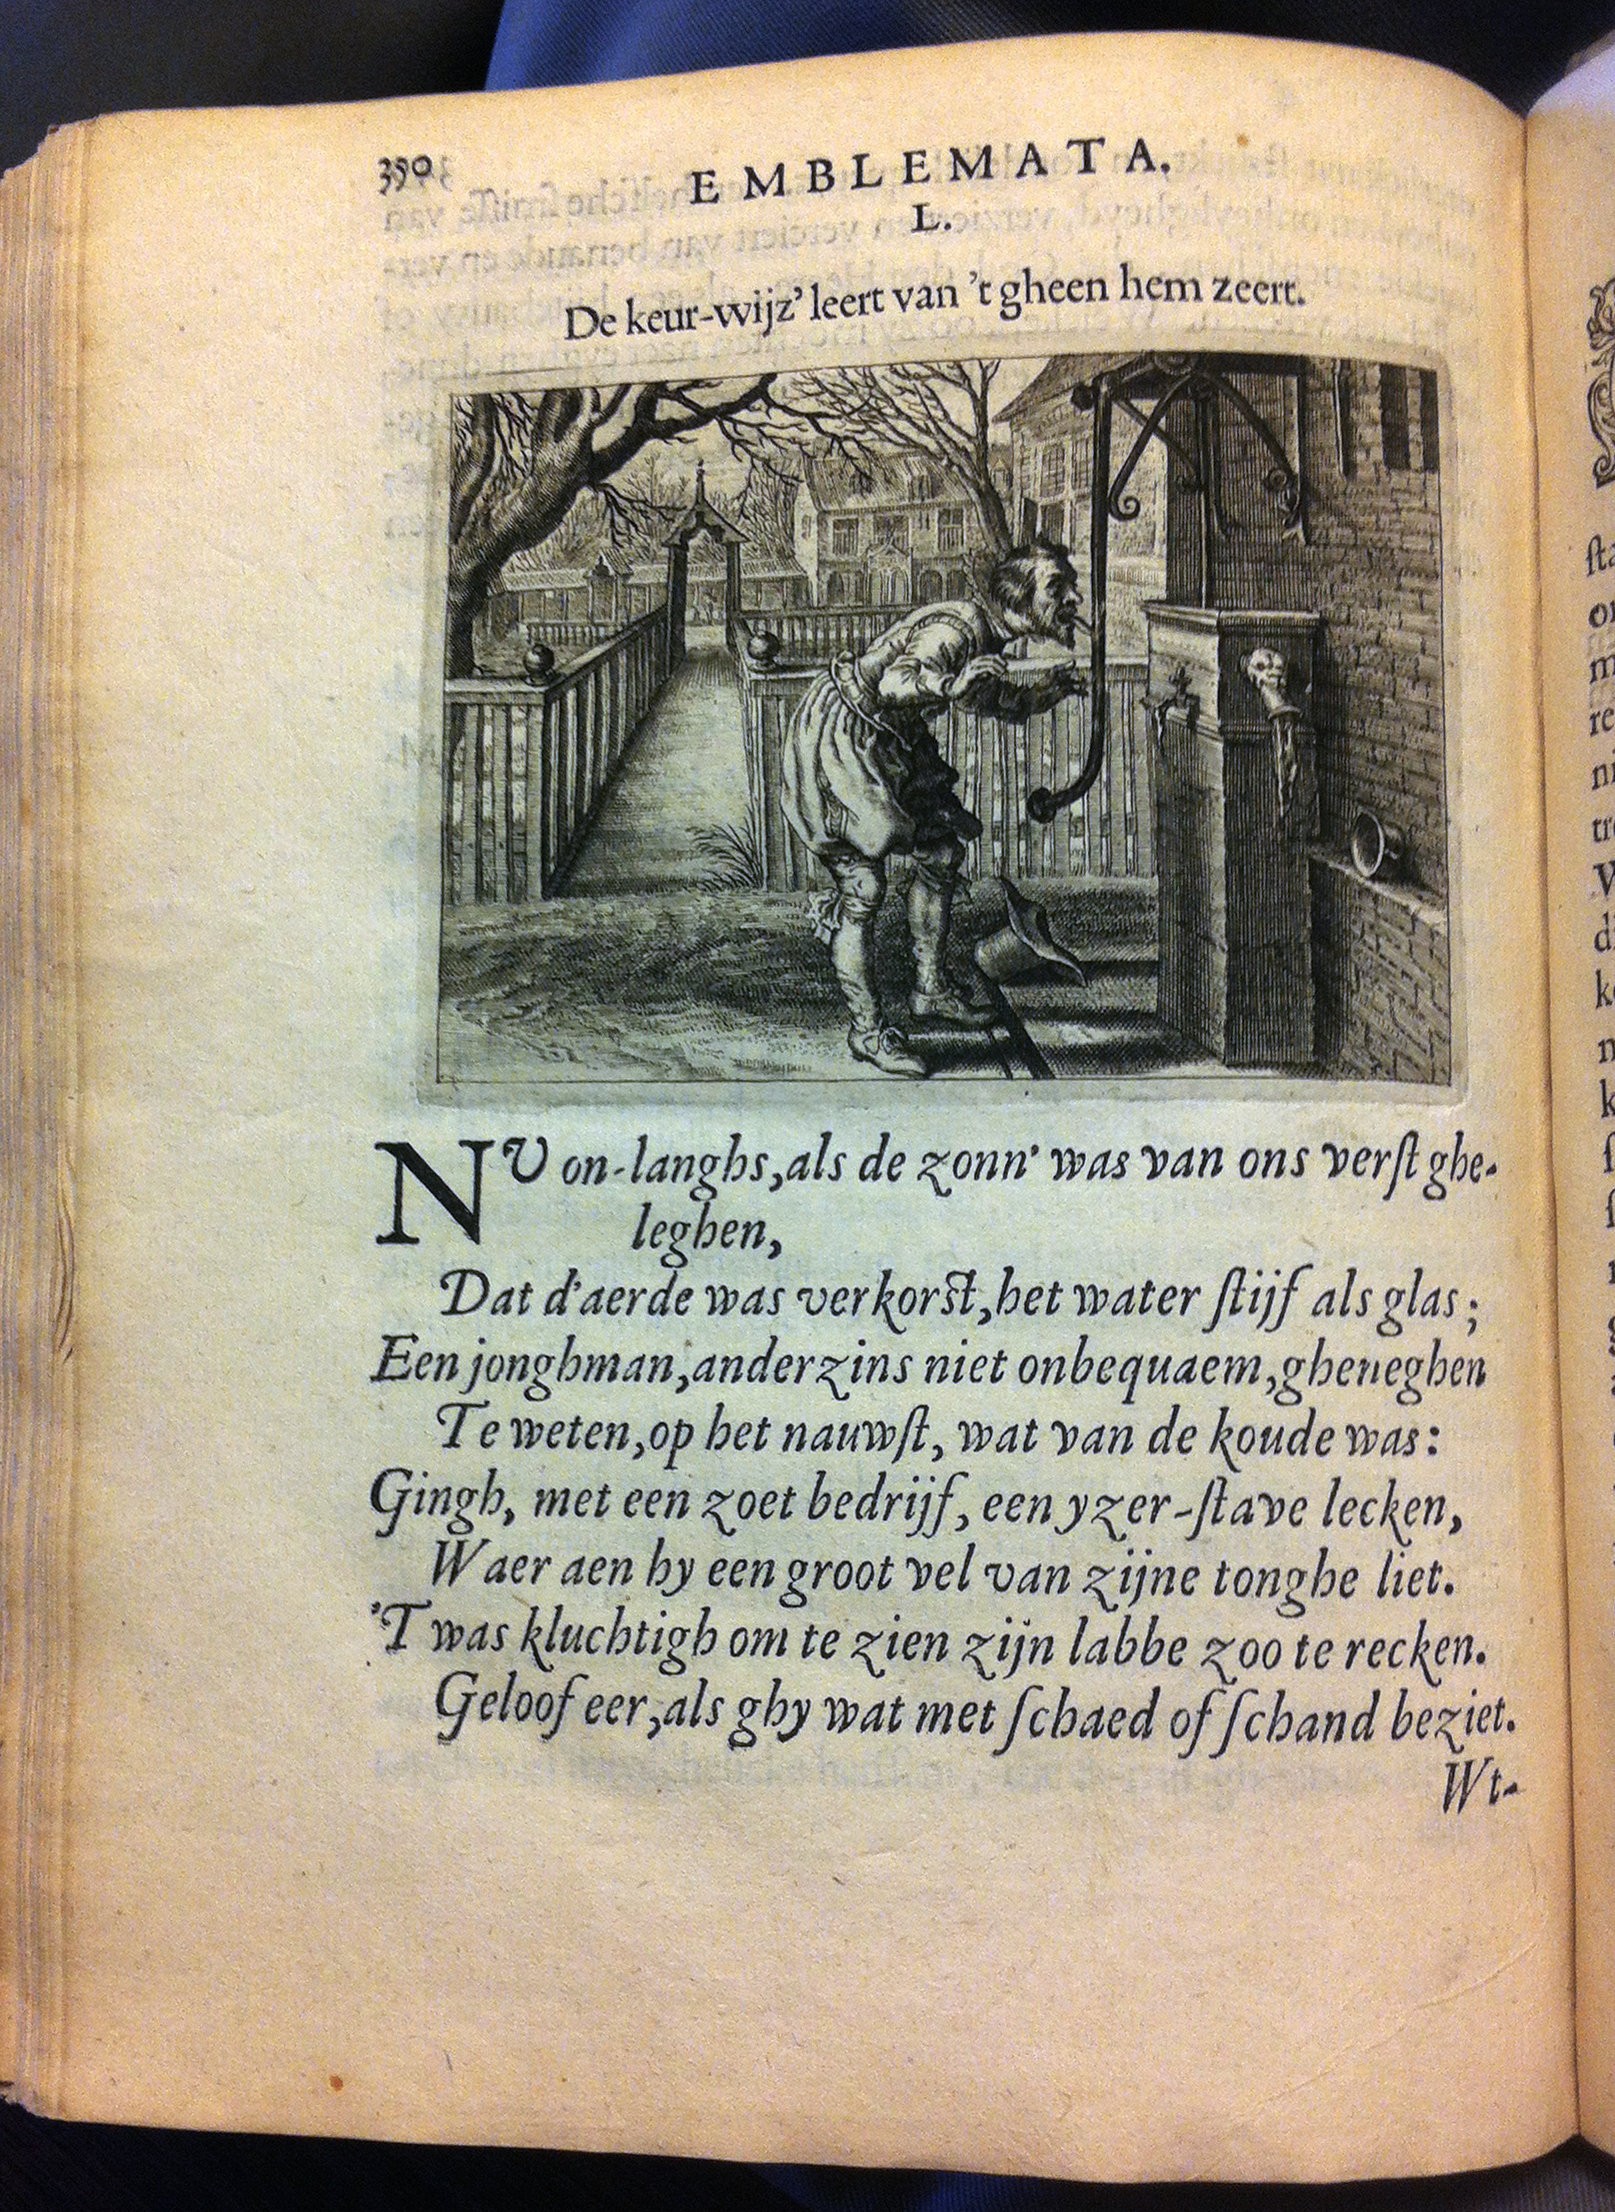 390 EMBLEMATA.
L.
De keur-wijz' leert van 't gheen hem zeert.
NU on-langhs, als de zonn' was van ons verſt ghe-
leghen,
Dat d'aerde was verkorſt, het water ſtijf als glas;
Een jonghman, anderzins niet onbequaem, gheneghen
Te weten, op het nauwſt, wat van de koude was:
Gingh, met een zoet bedrijf, een yzer-ſtave lecken,
Waer aen hy een groot vel van zijne tonghe liet.
'T was kluchtigh om te zien zijn labbe zoo te recken.
Geloof eer, als ghy wat met ſchaed of ſchand beziet.
Wt-